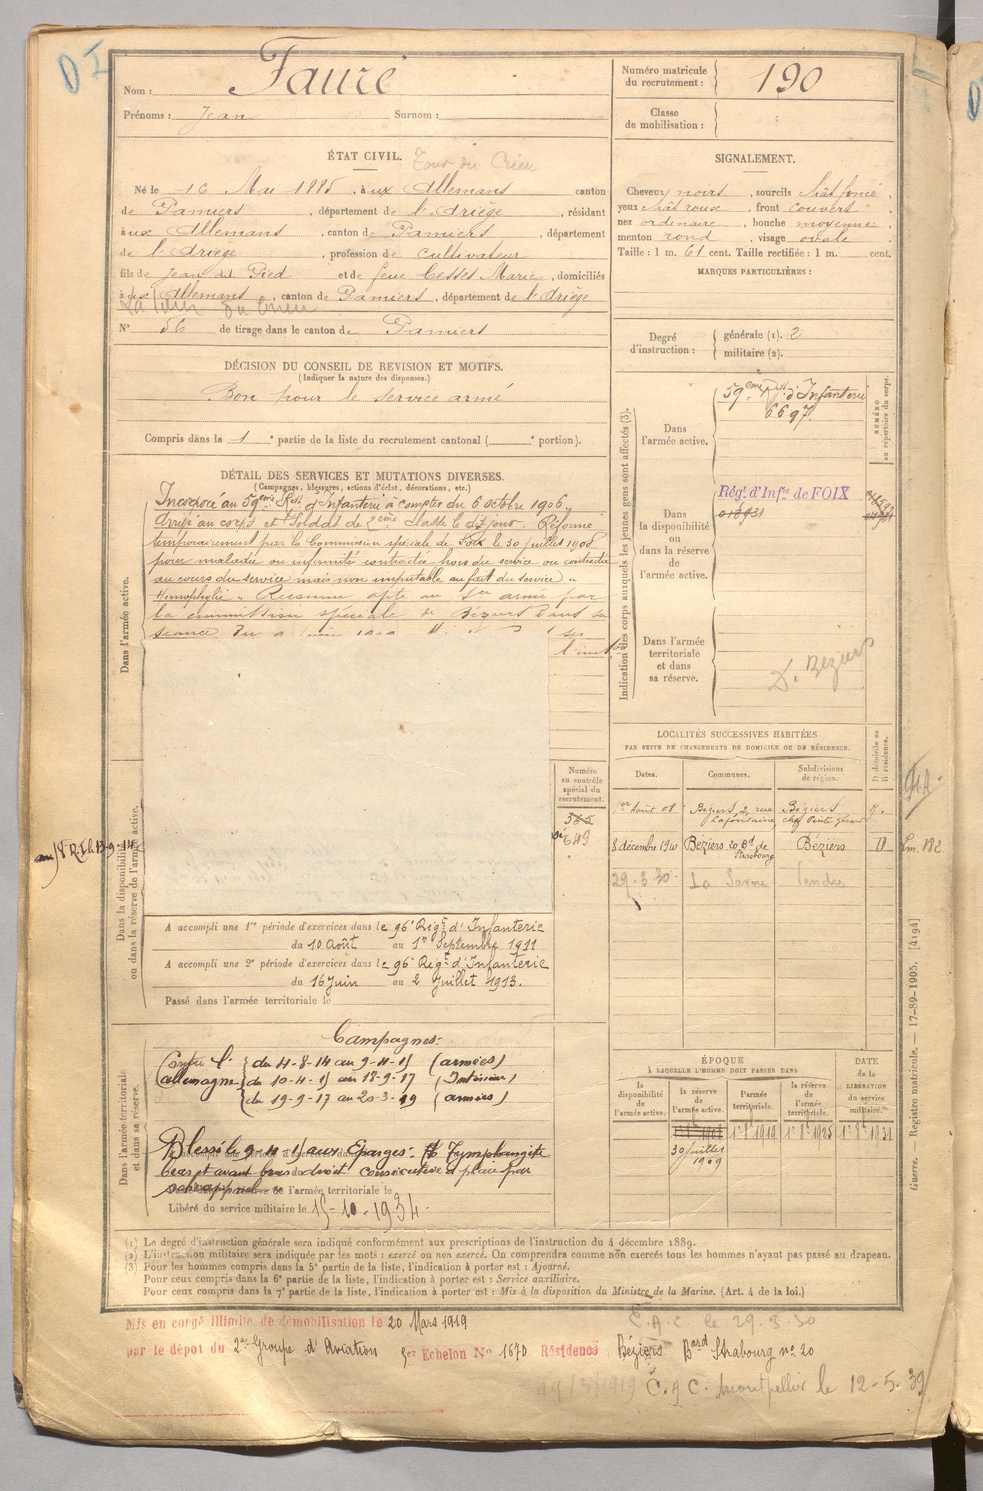 Nom : Faure
Prénoms : Jean Surnom :
Numéro matricule du recrutement : 190
Classe de mobilisation :
ÉTAT CIVIL. Tour du Crieu
Né le 16 Mai 1885, à ux Allemans canton
de Pamiers, département de l'Ariège, résidant
à ux Allemans, canton de Pamiers, département
de l'Ariège, profession de cultivateur
fils de Jean dit Pied et de feue Cesses Marie, domiciliés
à ux Allemans, canton de Pamiers, département de l'Ariège
La Tour du Crieu
N° 56 de tirage dans le canton de Pamiers
SIGNALEMENT.
Cheveux noirs, sourcils chât foncé
yeux chât roux, front couvert
nez ordinaire, bouche moyenne,
menton rond, visage ovale
Taille : 1 m. 61 cent. Taille rectifiée : 1 m. cent.
MARQUES PARTICULIÈRES :
Degré d'instruction : générale (1). 2
militaire (2).
DÉCISION DU CONSEIL DE REVISION ET MOTIFS.
(Indiquer la nature des dispenses.)
Bon pour le service armé
Compris dans la 1e partie de la liste du recrutement cantonal ( e portion).
DÉTAIL DES SERVICES ET MUTATIONS DIVERSES.
(Campagnes, blessures, actions d'éclat, décorations, etc.)
Incorporé au 59ème Rgt d'Infanterie à compter du 6 octobre 1906,
Arrivé au corps et Soldat de 2ème classe le dit jour. Réformé
temporairement par la Commission spéciale de Foix le 30 juillet 1908
pour maladie ou infirmité contractée hors du service ou contractée
au cours du service mais non imputable au fait du service "
Hémophylie ". Reconnu apte au Sce armé par
la commission spéciale de Béziers dans sa
séance du
Dans l'armée active.
Dans la disponibilité ou dans la réserve de l'armée active.
Dans l'armée territoriale et dans sa réserve.
Numéro au contrôle spécial du recrutement.
649
A accompli une 1re période d'exercices dans le 96e Régt d'Infanterie
du 10 Août au 1er Septembre 1911
A accompli une 2e période d'exercices dans le 96e Régt d'Infanterie
du 16 Juin au 2 Juillet 1913.
Passé dans l'armée territoriale le
Campagnes :
Contre l'allemagne { du 4-8-14 au 9-4-15 (armées)
du 10-4-15 au 18-9-17 (Intérieur)
du 19-9-17 au 20-3-19 (armées)
Blessé le 9-4-15 aux Eparges :
bras et avant bras droit consécutive à plaie par
schrappnel de l'armée territoriale le
Libéré du service militaire le 15-10-1934.
Indication des corps auxquels les jeunes gens sont affectés (3).
NUMÉRO au répertoire du corps.
Dans l'armée active.
59ème Rgt d'Infanterie
6697
Dans la disponibilité ou dans la réserve de l'armée active.
Régt d'Infie de FOIX
Dans l'armée territoriale et dans sa réserve.
D. Béziers
LOCALITÉS SUCCESSIVES HABITÉES
PAR SUITE DE CHANGEMENTS DE DOMICILE OU DE RÉSIDENCE.
Dates. Communes. Subdivisions de région. D domicile ou R résidence.
1er Août 08 Béziers, 2, rue Lafontaine Béziers
8 décembre 1910 Béziers 20 Bd de Strasbourg Béziers D
29.3.30
ÉPOQUE
À LAQUELLE L'HOMME DOIT PASSER DANS
la disponibilité de l'armée active. la réserve de l'armée active. l'armée territoriale. la réserve de l'armée territoriale. DATE de la LIBÉRATION du service militaire.
30 juillet 1909
Guerre. — Registre matricule. — 17-89-1905. [4194]
(1) Le degré d'instruction générale sera indiqué conformément aux prescriptions de l'instruction du 4 décembre 1889.
(2) L'instruction militaire sera indiquée par les mots : exercé ou non exercé. On comprendra comme non exercés tous les hommes n'ayant pas passé au drapeau.
(3) Pour les hommes compris dans la 5e partie de la liste, l'indication à porter est : Ajourné.
Pour ceux compris dans la 6e partie de la liste, l'indication à porter est : Service auxiliaire.
Pour ceux compris dans la 7e partie de la liste, l'indication à porter est : Mis à la disposition du Ministre de la Marine. (Art. 4 de la loi.)
Mis en congé illimité de démobilisation le 20 Mars 1919
C.A.C. le 29.3.30
par le dépôt du 2e Groupe d'Aviation 5er Echelon N° 1670 Résidence Béziers Bard Strabourg no 20
C.A.C. Montpellier le 12-5.39